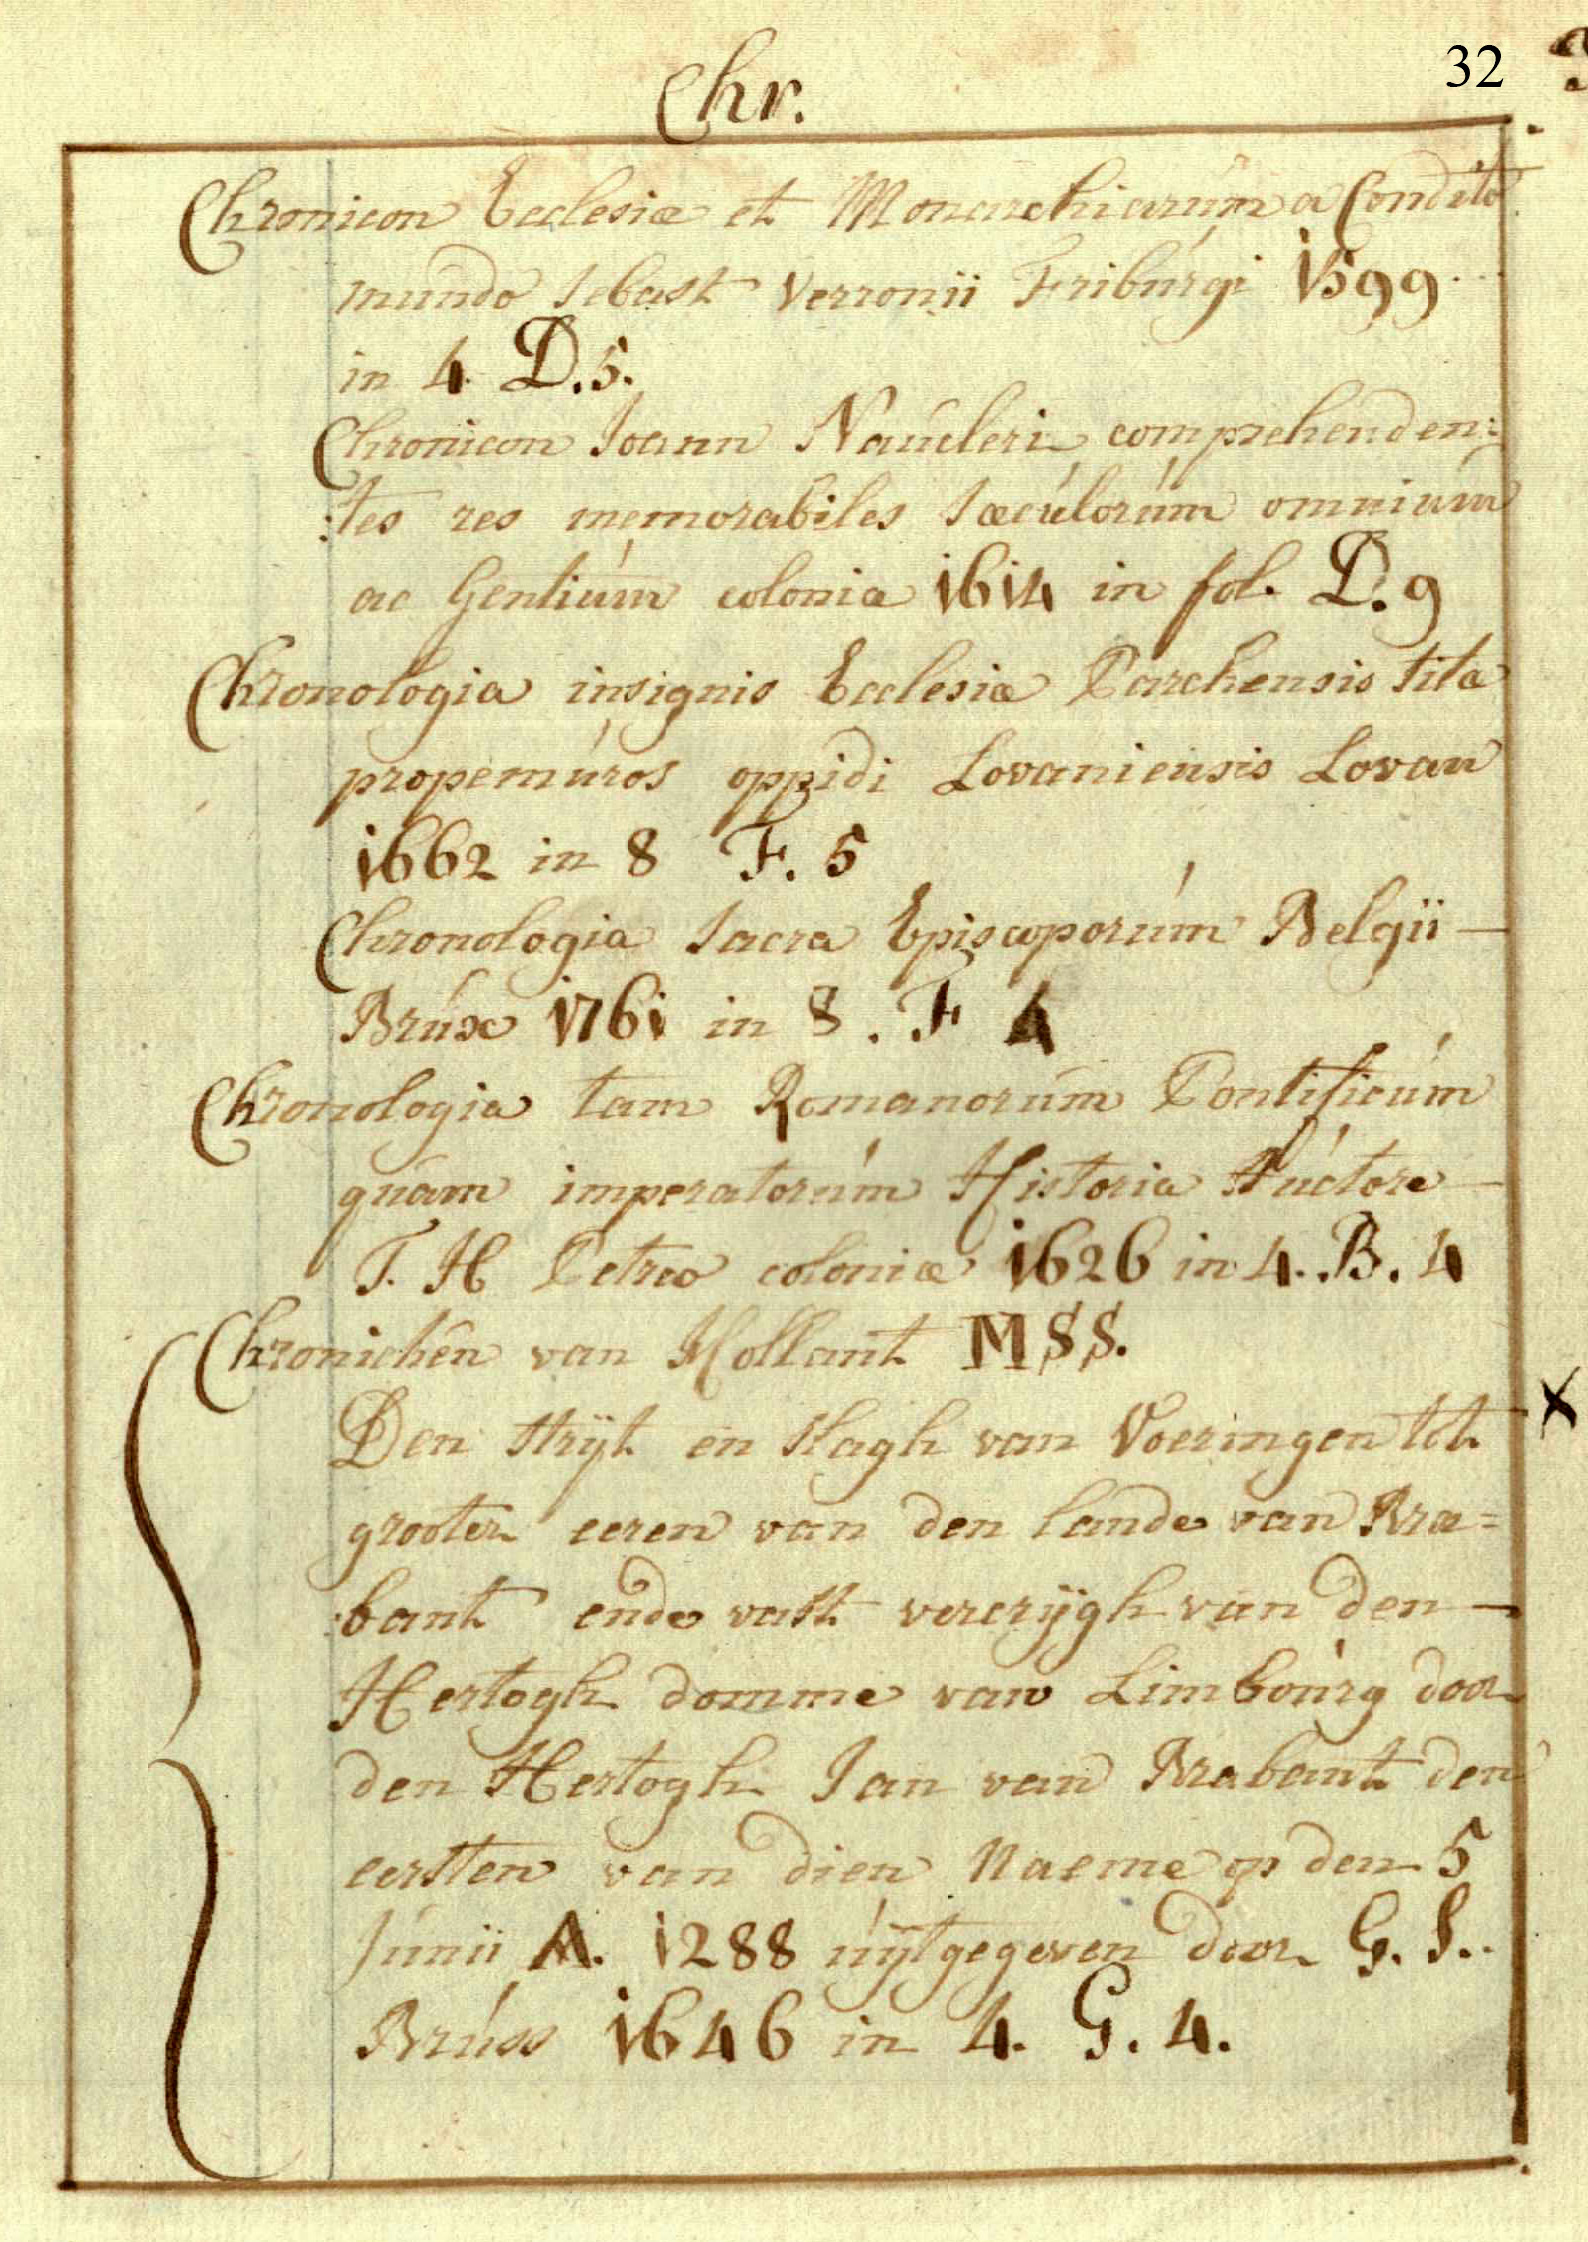 32
Chr.
Chronicon Ecclesiæ et Monarchiarúm a Condito
múndo Sebast Verronii Fribúrgi 1599
in 4 D.5.
Chronicon Joann Naúcleri comprehenden:
:tes res memorabiles Sæcúlorúm omniúm
ac Gentiúm colonia 1614 in fol. D.9
Chronologia insignis Ecclesiæ Parchensis sita
propemúros oppidi Lovaniensis Lovan
1662 in 8 F. 5
Chronologia Sacra Episcoporúm Belgii —
Brúx 1761 in 8. F 4
Chronologia tam Romanorúm Pontificúm
quam imperatorúm Historia Aúctore —
T. H Petreo coloniæ 1626 in 4. B. 4
Chronichên van Hollant MSS.
Den strijt en slagh van Voeringen tot
grooter eeren van den lande van Bra=
:bant ende vast vercrijgh van den —
Hertogh domme van Limboúrg door
den Hertogh Jan van Brabant den
eersten van dien Naeme op den 5
Júnii A. 1288 úÿtgegeven door G. S..
Brúss 1646 in 4. G. 4.